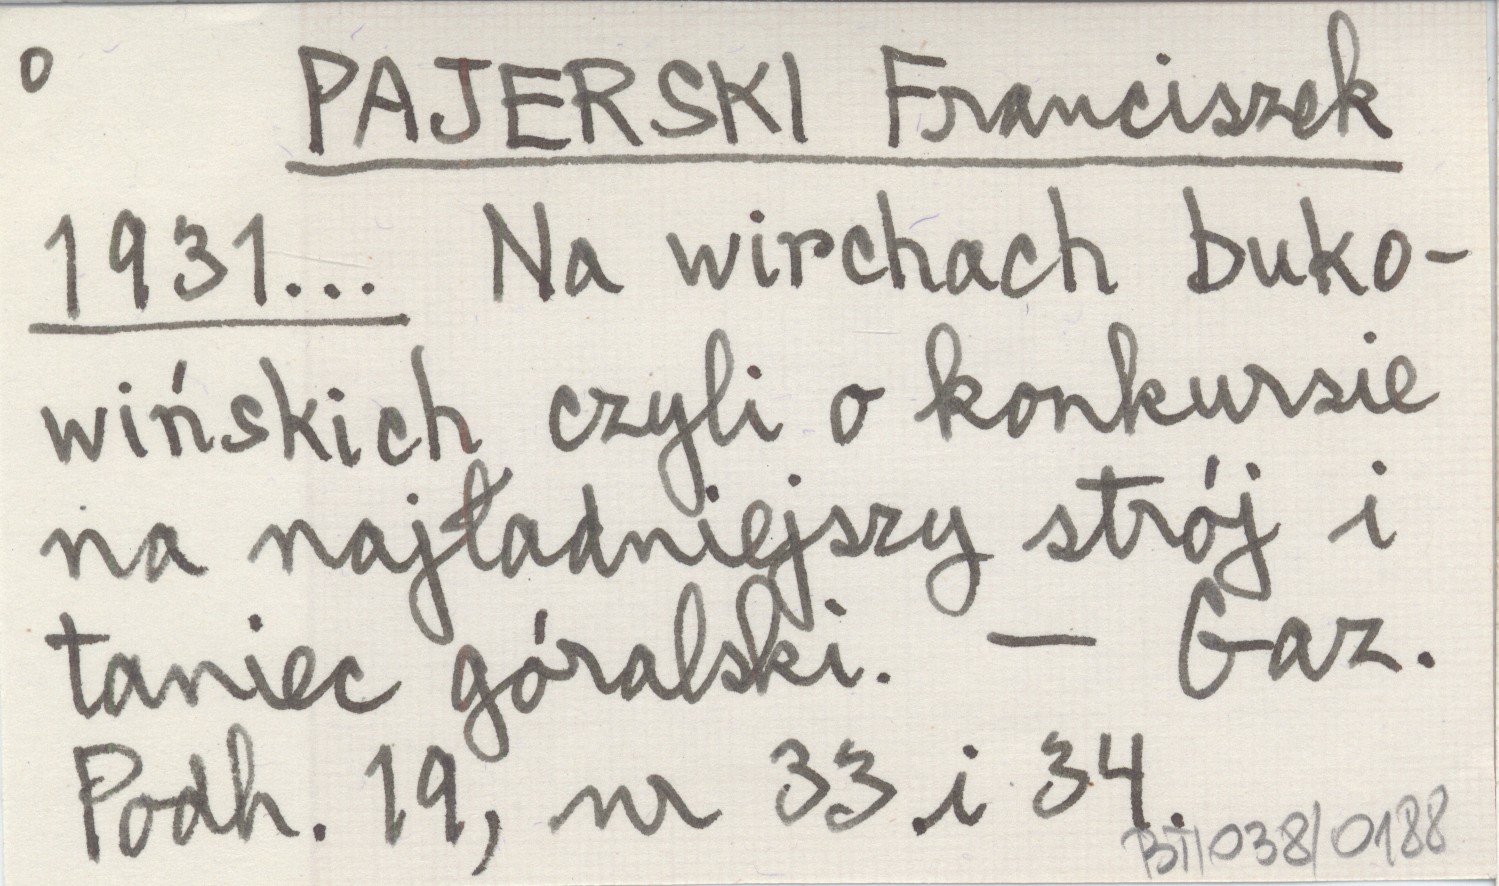 o PAJERSKI Franciszek
1931... Na wirchach buko-
wińskich czyli o konkursie
na najładniejszy strój i
taniec góralski. — Gaz.
Podh. 19, nr 33 i 34.
BT/038/0188